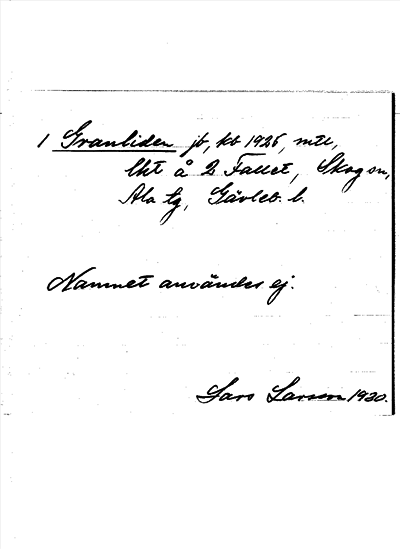 1 Granliden jb, kb 1925, mtl,
lht å 2 Fallet, Skog sn,
Ala tg, Gävleb. l.
Namnet användes ej.
Lars Larson 1930.